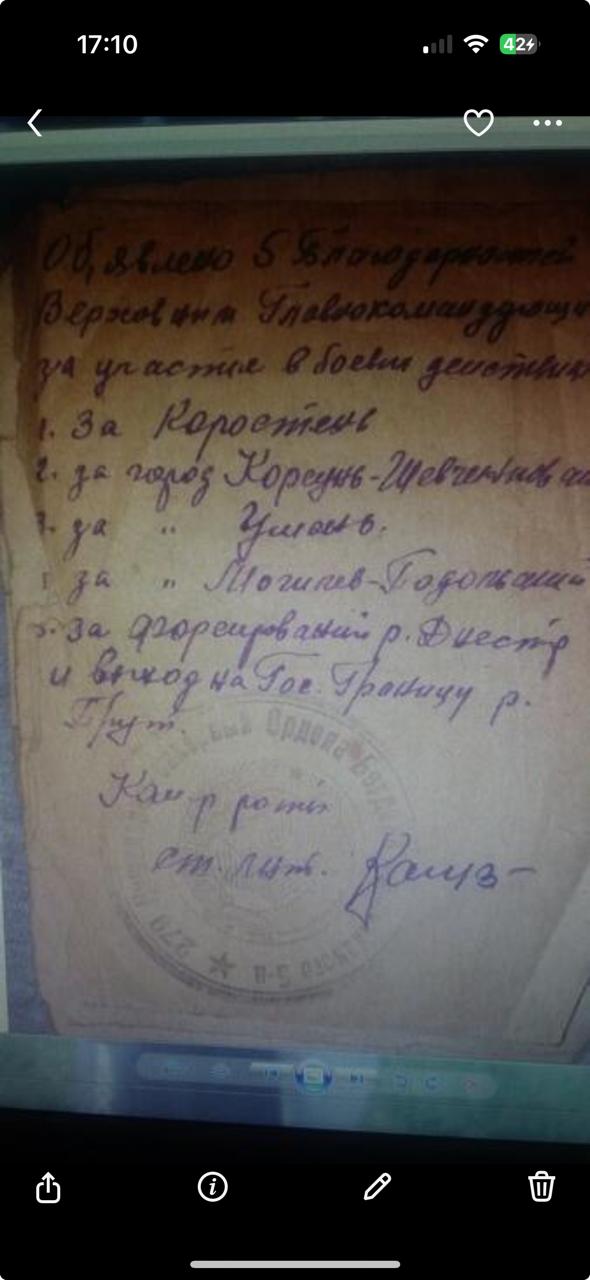 17:10
42
Об,явлено 5 Благодарностей
Верховным Главнокомандующи
за участие в боевых действиях
1. За Коростень
2. за город Корсунь-Шевченковск
3. за " Умань.
за " Могилев-Подольский
5. За форсирований р. Днестр
и выход на Гос. Границу р.
Прут.
Ордена Богд
Ком р роты
ст. лит.
279